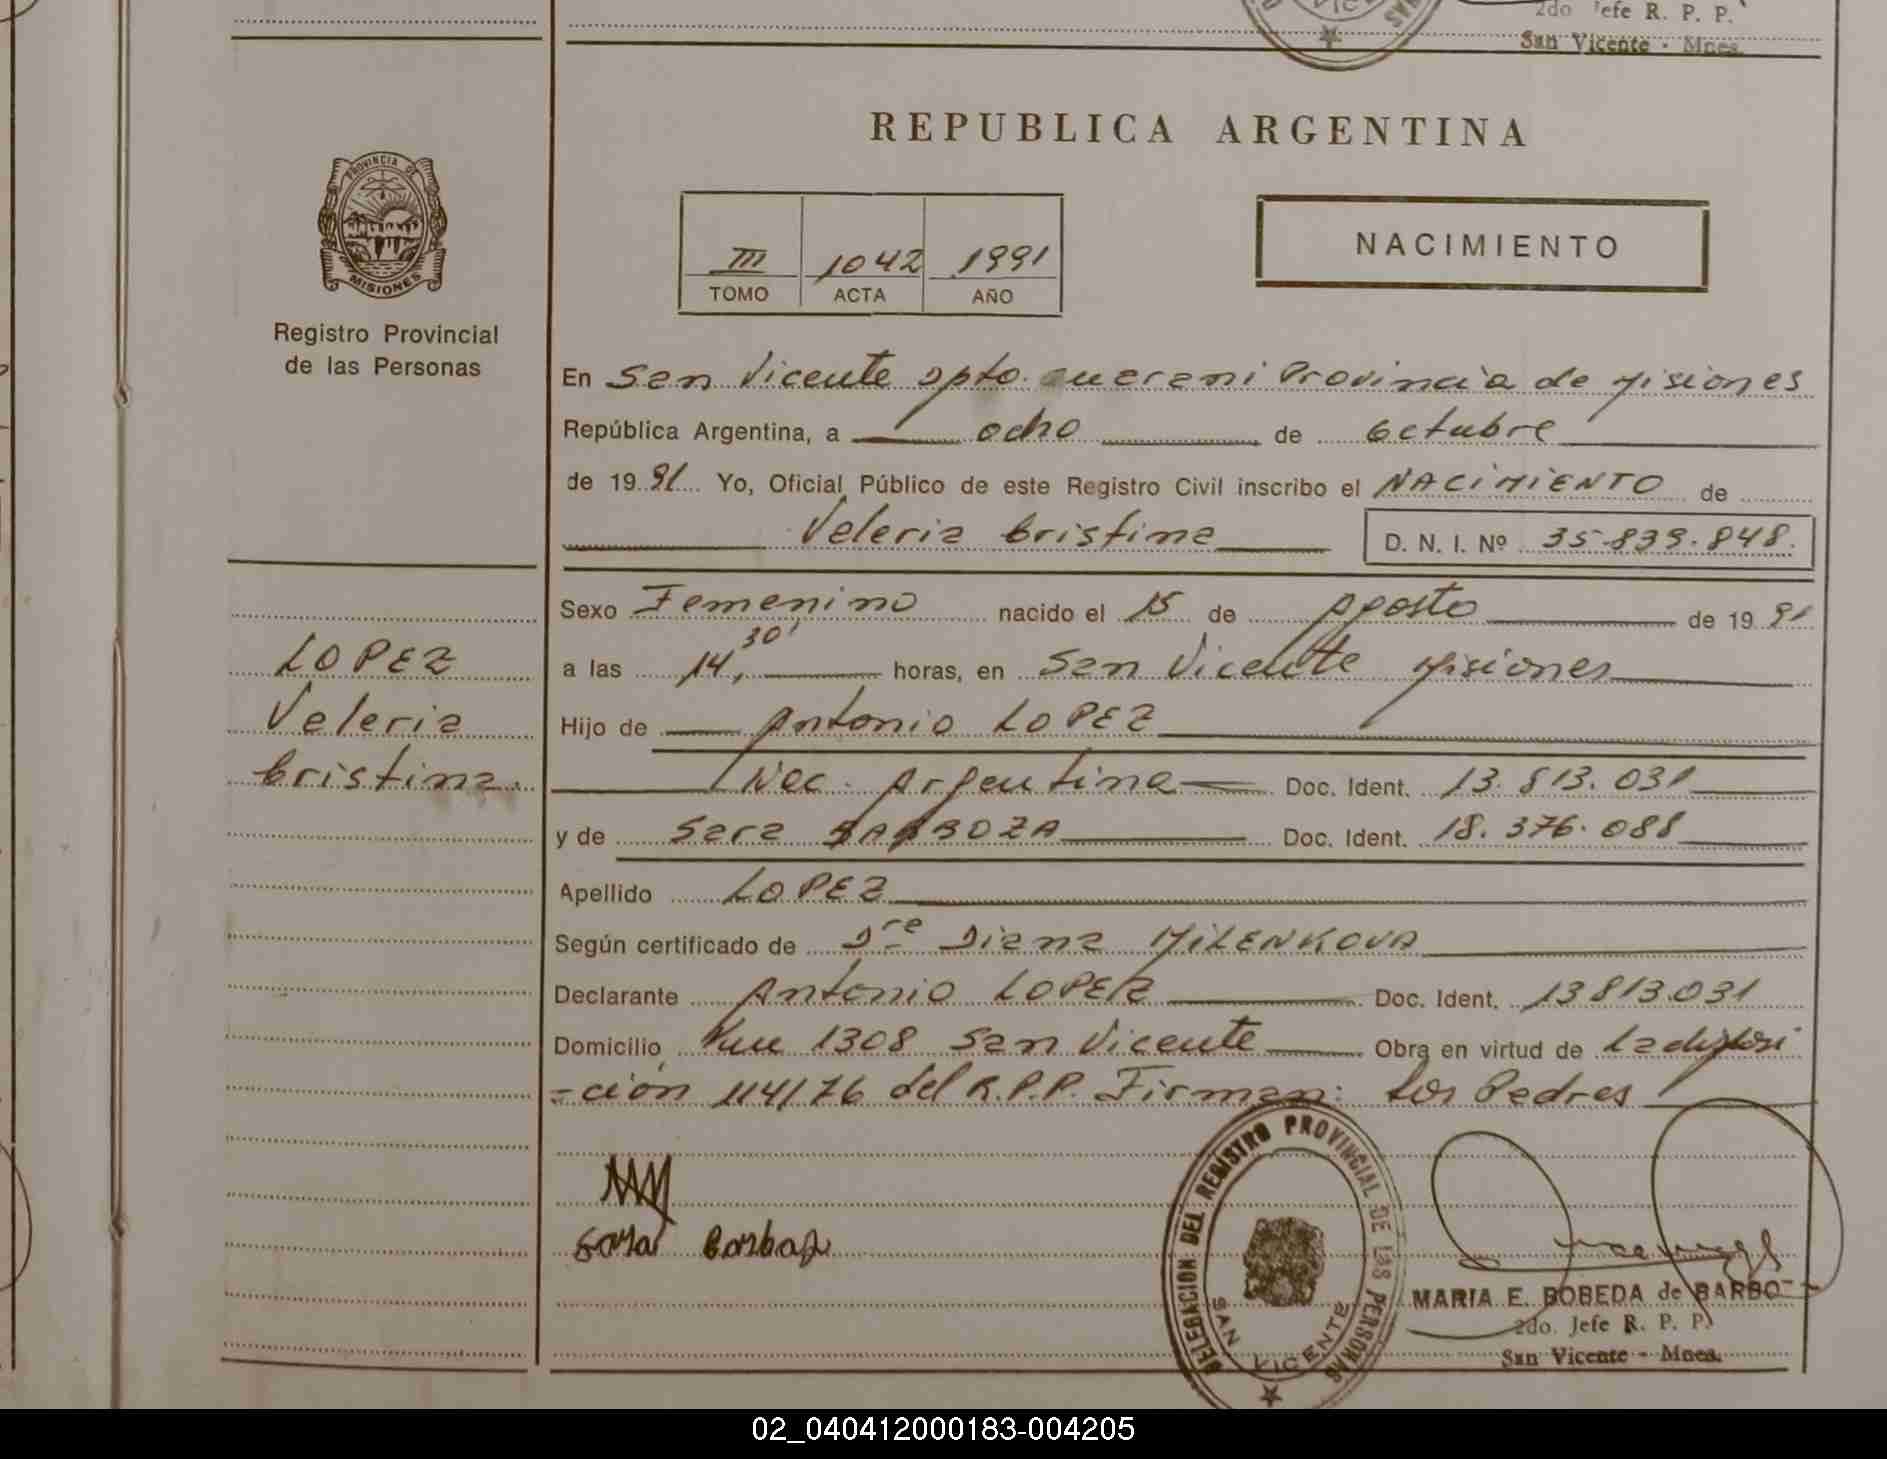 2do Jefe R. P. P.
San Vicente - Mnes.
REPUBLICA ARGENTINA
PROVINCIA DE
MISIONES
Registro Provincial
de las Personas
III 1042 1991
TOMO ACTA AÑO
NACIMIENTO
En San Vicente Dpto. Guarani Provincia de Misiones
República Argentina, a ocho de Octubre
de 1991 Yo, Oficial Público de este Registro Civil inscribo el NACIMIENTO de
Valeria Cristina D. N. I. Nº 35.839.848.
Sexo Femenino nacido el 15 de Agosto de 1991
a las 14,30' horas, en San Vicente Misiones
Hijo de Antonio LOPEZ
Nac. Argentina Doc. Ident. 13.813.031
y de Sara BARBOZA Doc. Ident. 18.376.088
Apellido LOPEZ
Según certificado de Dra Diana MILENKOVA
Declarante Antonio LOPEZ Doc. Ident. 13813.031
Domicilio Km 1308 San Vicente Obra en virtud de la disposi
=ción 114/76 del R.P.P. Firman: Los Padres
LOPEZ
Valeria
Cristina.
Sara
DELEGACION DEL REGISTRO PROVINCIAL DE LAS PERSONAS
SAN VICENTE
MARIA E. BOBEDA de BARBO
2do. Jefe R. P. P.
San Vicente - Mnes.
02_040412000183-004205